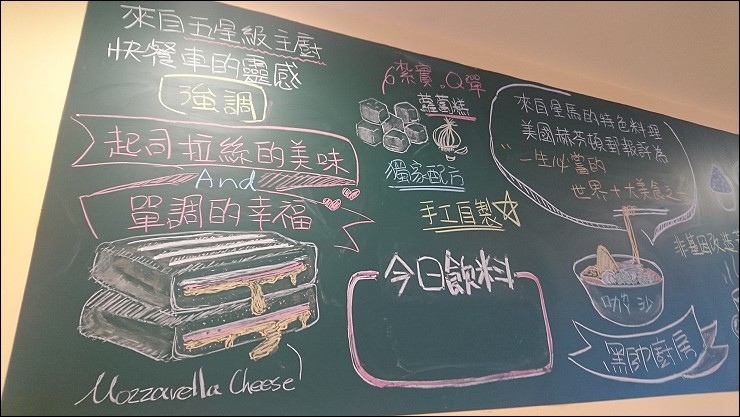 來自五星級主廚
快餐車的靈感
強調
起司拉絲的美味
And
單調的幸福
Mozzarella Cheese
紮實。Q彈
蘿蔔糕
獨家配方
手工自製
今日飲料
來自星馬的特色料理
美國赫芬頓郵報評為
一生必嘗的
世界十大美食之一
叻沙
黑帥廚房
非基因改造